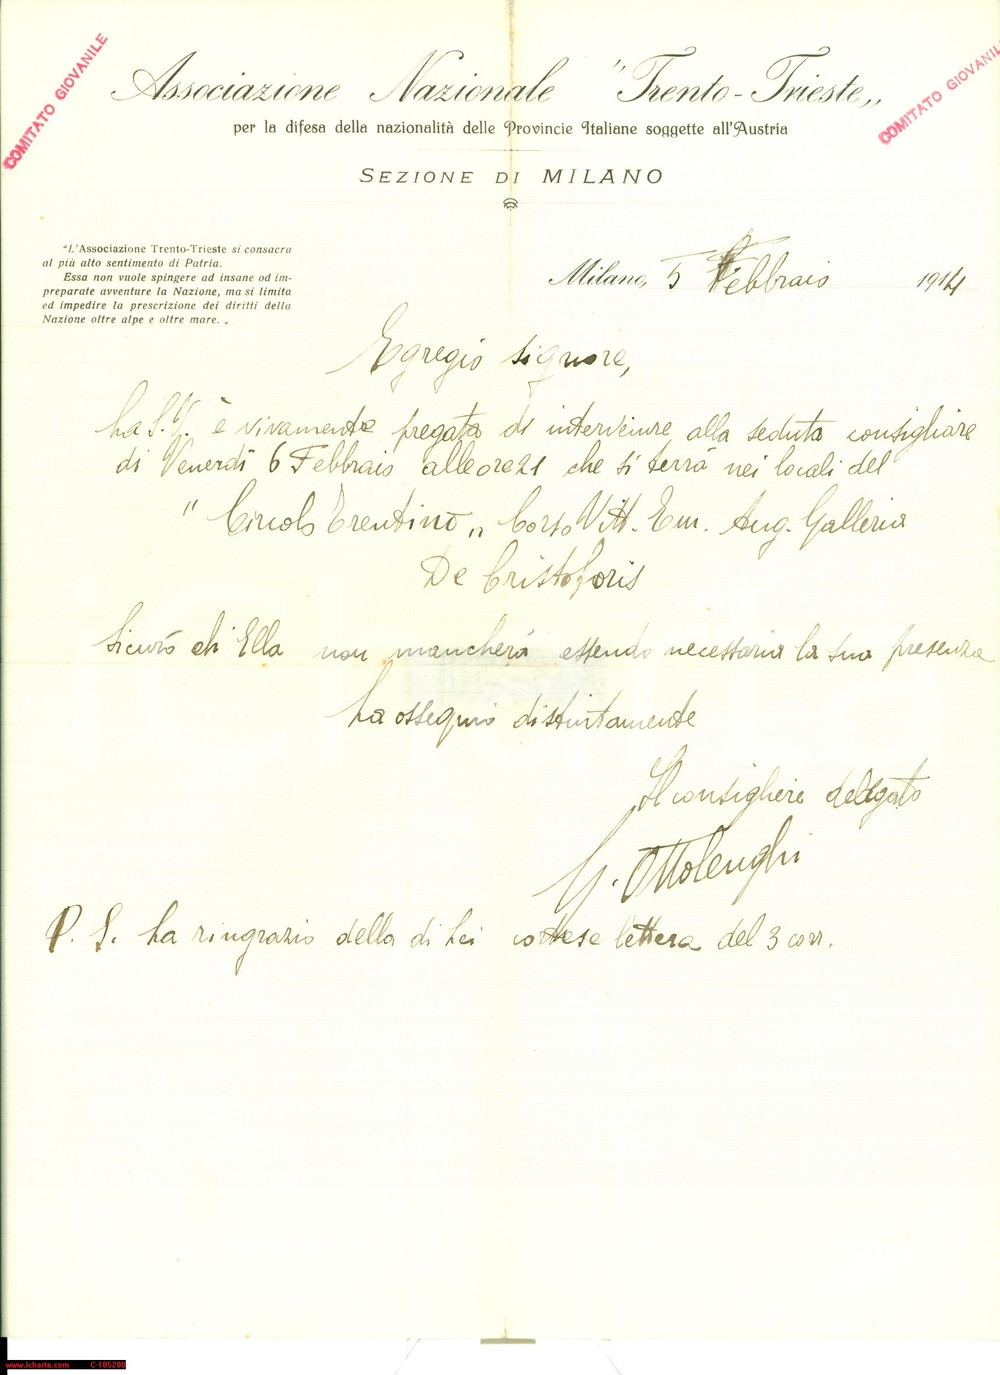 COMITATO GIOVANILE
COMITATO GIOVANILE
Associazione Nazionale "Trento-Trieste„
per la difesa della nazionalità delle Provincie Italiane soggette all'Austria
SEZIONE DI MILANO
"L'Associazione Trento-Trieste si consacra
al più alto sentimento di Patria.
Essa non vuole spingere ad insane od im-
preparate avventure la Nazione, ma si limita
ed impedire la prescrizione dei diritti della
Nazione oltre alpe e oltre mare. „
Milano, 5 Febbraio 1914
Egregio signore,
La S.V. è vivamente pregata di intervenire alla seduta consigliare
di Venerdì 6 Febbraio alle ore 21 che si terrà nei locali del
"Circolo Trentino„ Corso Vitt. Em. Ang. Galleria
De Cristoforis
Sicuro ch'Ella non mancherà essendo necessaria la sua presenza
La ossequio distintamente
Il consigliere delegato
G. Ottolenghi
P. S. La ringrazio della di Lei cortese lettera del 3 corr.
www.icharta.com C-105200